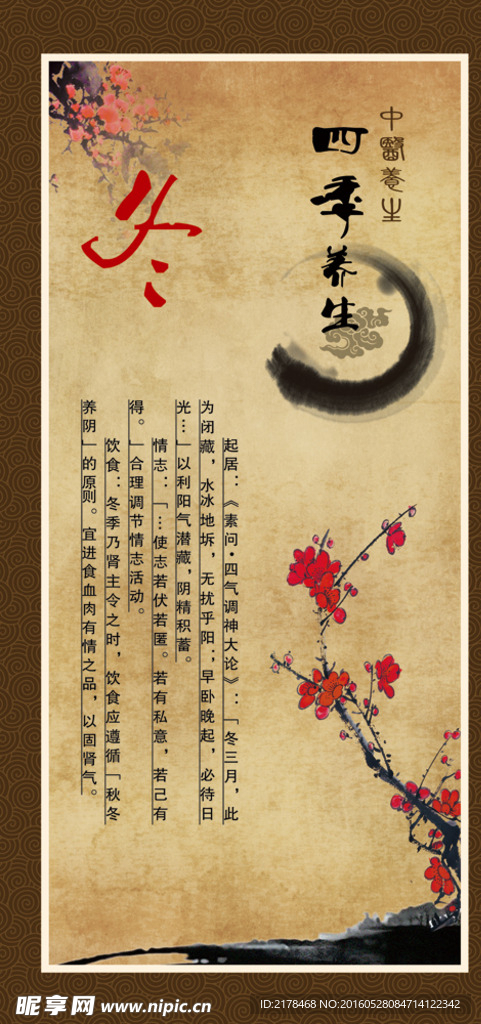 中醫養生
四季养生
冬
起居：《素问·四气调神大论》：「冬三月，此
为闭藏，水冰地坼，无扰乎阳；早卧晚起，必待日
光…」以利阳气潜藏，阴精积蓄。
情志：「…使志若伏若匿。若有私意，若己有
得。」合理调节情志活动。
饮食：冬季乃肾主令之时，饮食应遵循「秋冬
养阴」的原则。宜进食血肉有情之品，以固肾气。
昵享网 www.nipic.cn
ID:2178468 NO:20160528084714122342